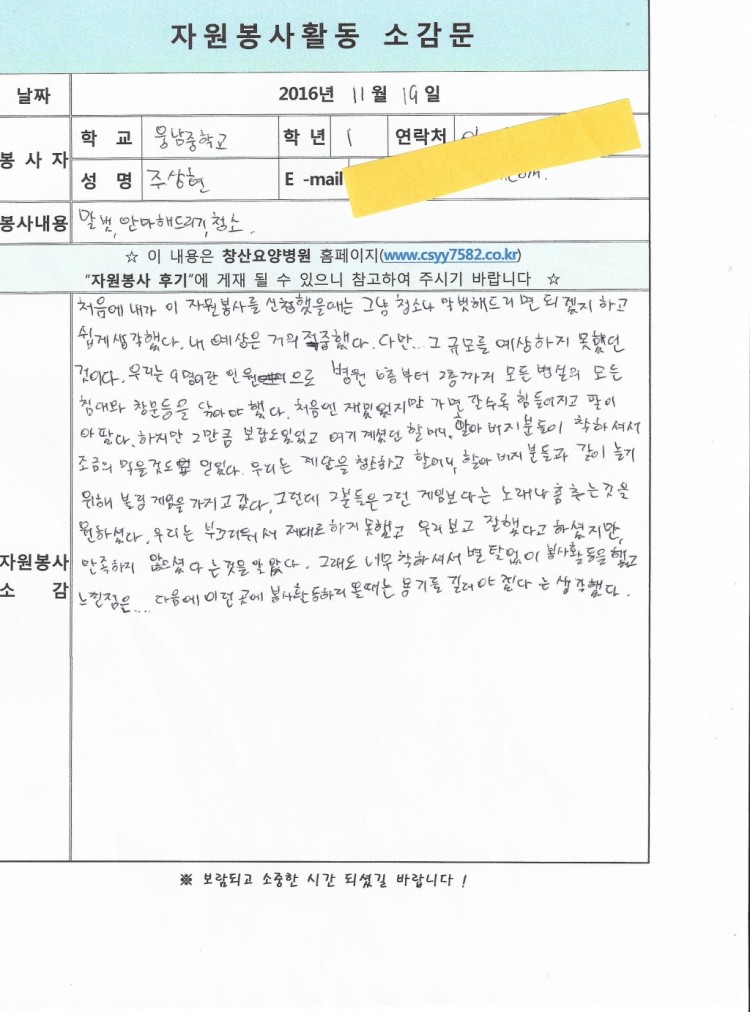 자원봉사활동 소감문
날짜 2016년 11월 19일
봉사자 학 교 웅남중학교 학 년 1 연락처
성 명 주상현 E -mail com.
봉사내용 말벗, 안마해드리기, 청소.
☆ 이 내용은 창산요양병원 홈페이지(www.csyy7582.co.kr)
"자원봉사 후기"에 게재 될 수 있으니 참고하여 주시기 바랍니다 ☆
자원봉사 소 감
처음에 내가 이 자원봉사를 신청했을때는 그냥 청소나 말벗해드리면 되겠지 하고
쉽게생각했다. 내 예상은 거의 적중했다. 다만... 그 규모를 예상하지 못했던
것이다. 우리는 9명이란 인원으로 병원 6층부터 2층까지 모든 병실의 모든
침대와 창문등을 닦아야 했다. 처음엔 재밌었지만 가면 갈수록 힘들어지고 팔이
아팠다. 하지만 그만큼 보람도있었고 여기계셨던 할머니, 할아버지분들이 착하셔서
조금의 먹을것도 있었다. 우리는 계단을 청소하고 할머니, 할아버지분들과 같이 놀기
위해 볼링 게임을 가지고 갔다. 그런데 그분들은 그런 게임보다는 노래나 춤추는것을
원하셨다. 우리는 부끄러워서 제대로하지못했고 우리보고 잘했다고 하셨지만,
만족하지 않으셨다는것을 알았다. 그래도 너무 착하셔서 별 탈없이 봉사활동을 했고
느낀점은... 다음에 이런 곳에 봉사활동하러 올때는 용기를 길러야 겠다는 생각했다.
※ 보람되고 소중한 시간 되셨길 바랍니다 !